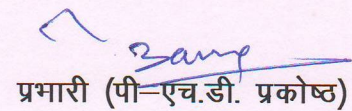 प्रभारी (पी–एच.डी. प्रकोष्ठ)